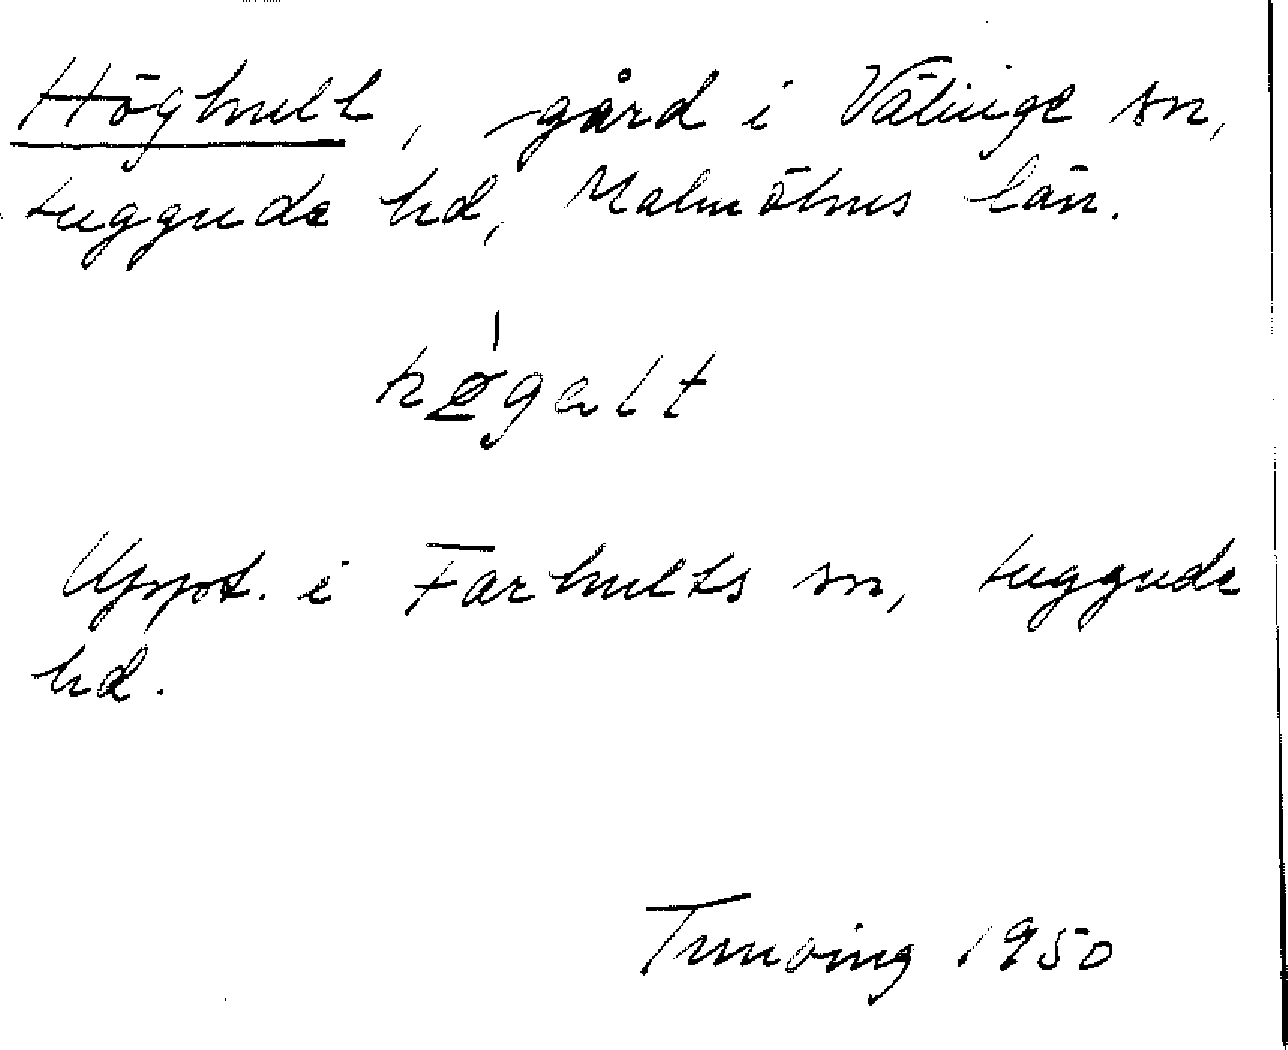 Höghult, gård i Välinge sn,
Luggude hd, Malmöhus län.
høgalt
Uppt. i Farhults sn, Luggude
hd.
1950